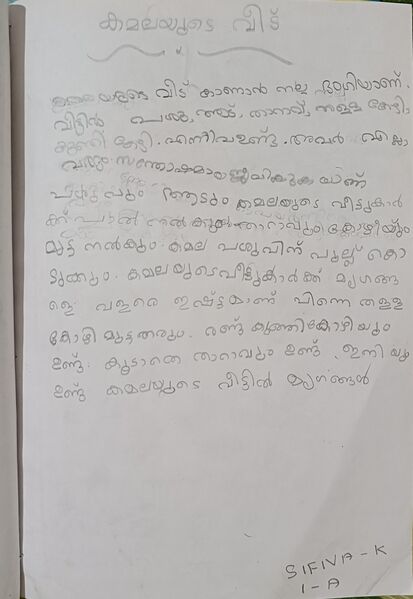 കമലയുടെ വീട്
കമലയുടെ വീട് കാണാൻ നല്ല ഭംഗിയാണ്.
വീട്ടിൽ പശു, ആട്, താറാവ്, തള്ള കോഴി,
കുഞ്ഞി കോഴി. എന്നിവ ഉണ്ട്. അവർ എല്ലാ
വരും സന്തോഷമായി ജീവിക്കുക യാണ്
പശു വും ആടും കമലയുടെ വീട്ടുകാർ
ക്ക് പാൽ നൽകും താറാവും കോഴിയും
മുട്ട നൽകും. കമല പശുവിന് പുല്ല് കൊ
ടുക്കും. കമലയുടെവീട്ടുകാർക്ക് മൃഗങ്ങ
ളെ വളരെ ഇഷ്ട്ടമാണ് പിന്നെ തള്ള
കോഴി മുട്ട തരും. രണ്ട് കുഞ്ഞികോഴിയും
ഉണ്ട്. കൂടാതെ താറാവും ഉണ്ട്. ഇനി യും
ഉണ്ട് കമലയുടെ വീട്ടിൽ മൃഗങ്ങൾ
SIFINA - K
1 - A